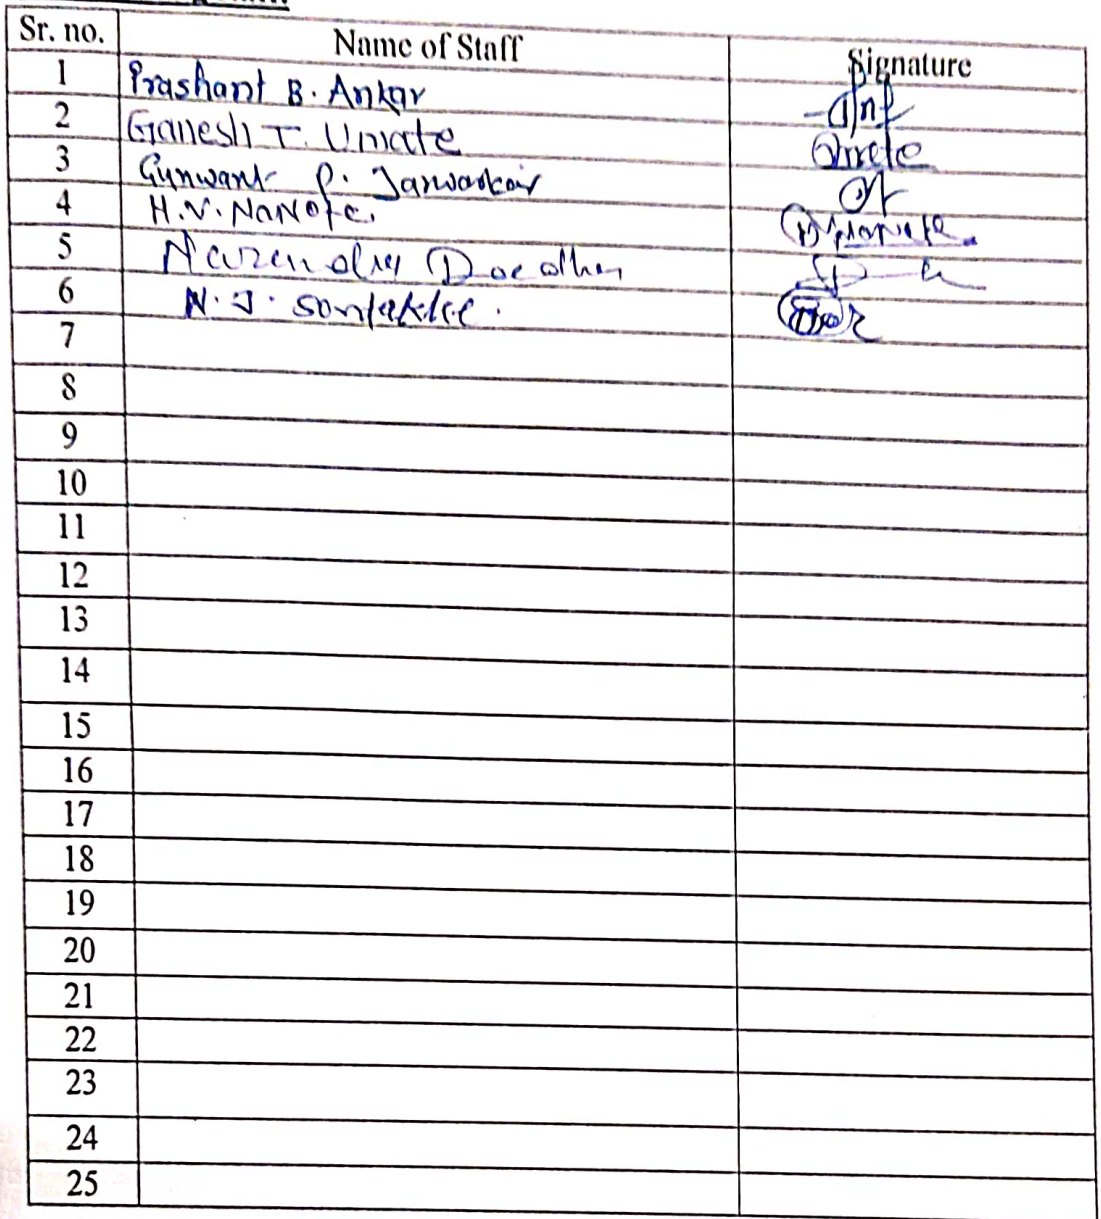 Sr. no. Name of Staff Signature
1 Prashant B. Ankar
2 Ganesh T. Umate Umate
3 Gunwant P. Janwarkar
4 H.V. NaNote. Nanote.
5 Narendra
6 N. J. Sontakke.
7
8
9
10
11
12
13
14
15
16
17
18
19
20
21
22
23
24
25